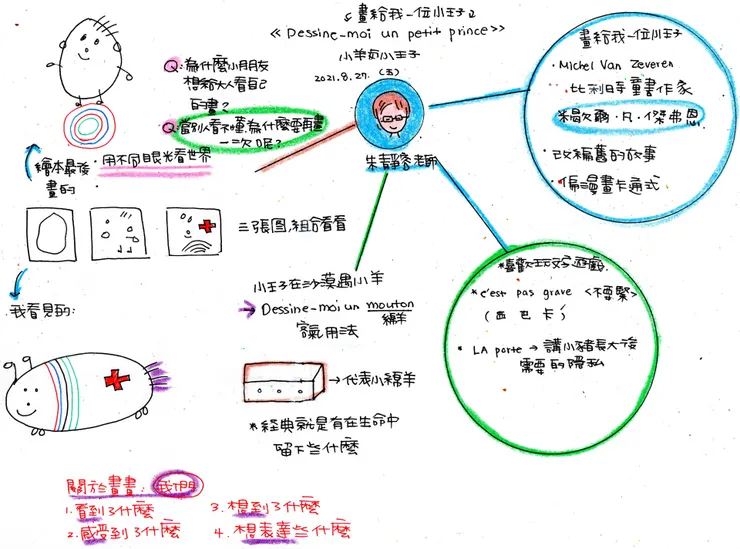 畫給我一位小王子
<<Dessine-moi un petit prince>>
小羊的小王子
2021.8.27.(五)
朱靜容老師
Q:為什麼小朋友
想給大人看自己
的畫?
Q:當別人看不懂,為什麼要再畫
一次呢?
繪本最後
畫的
·用不同眼光看世界
三張圖,組合看看
我看見的:
畫給我一位小王子
·Michel Van Zeveren
·比利時童書作家
·米歇爾·凡·傑弗恩
·改編舊的故事
·偏漫畫卡通式
*喜歡玩文字遊戲
*c'est pas grave <不要緊>
(西巴卡)
*LA porte → 講小豬長大後
需要的隱私
小王子在沙漠遇小羊
→ Dessine-moi un mouton
綿羊
客氣用法
→ 代表小綿羊
*經典就是有在生命中
留下些什麼
關於畫畫:我們
1.看到了什麼
2.感受到了什麼
3.想到了什麼
4.想表達些什麼